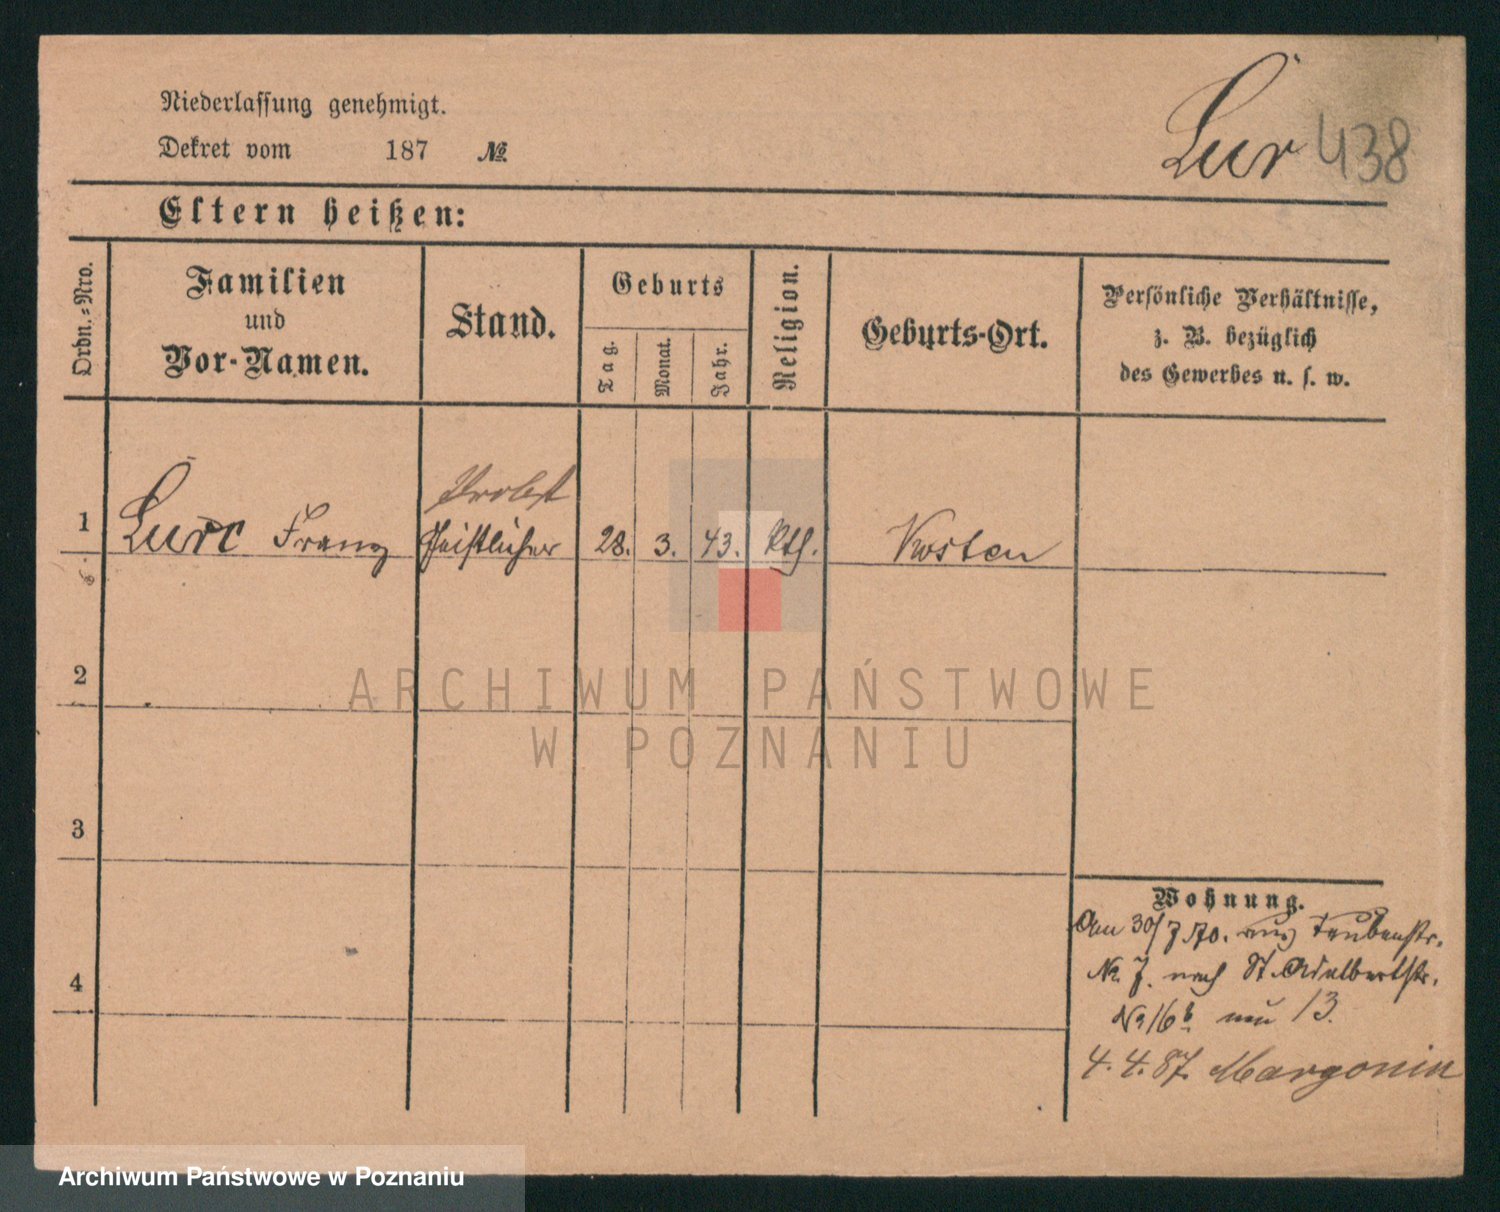 Niederlassung genehmigt.
Dekret vom 187 №
Lur 438
Eltern heißen:
Ordn.-Nro.
Familien
und
Vor-Namen.
Stand.
Geburts
Tag.
Monat.
Jahr.
Religion.
Geburts-Ort.
Persönliche Verhältnisse,
z. B. bezüglich
des Gewerbes u. s. w.
Probst
1 Lurc Franz Geistlicher 28. 3. 43. kth. Kosten
2
3
4
ARCHIWUM PAŃSTWOWE
W POZNANIU
Wohnung.
Am 30/7 70. aus Taubenstr.
№ 7. nach St. Adalbertstr.
№ 16 b neu 13.
4. 4. 87. Margonin
Archiwum Państwowe w Poznaniu